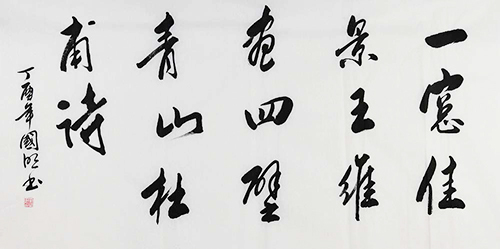 一窓佳
景王維
画四壁
青山杜
甫詩
丁酉年國明書